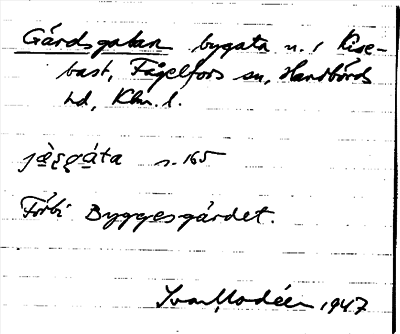 Gårdsgatan bygata n. i Kise-
bast, Fågelfors sn, Handbörds
hd, Klm. l.
jæ̀ʂgáta s. 165
Förbi Byggesgärdet.
Ivar Modéer 1947